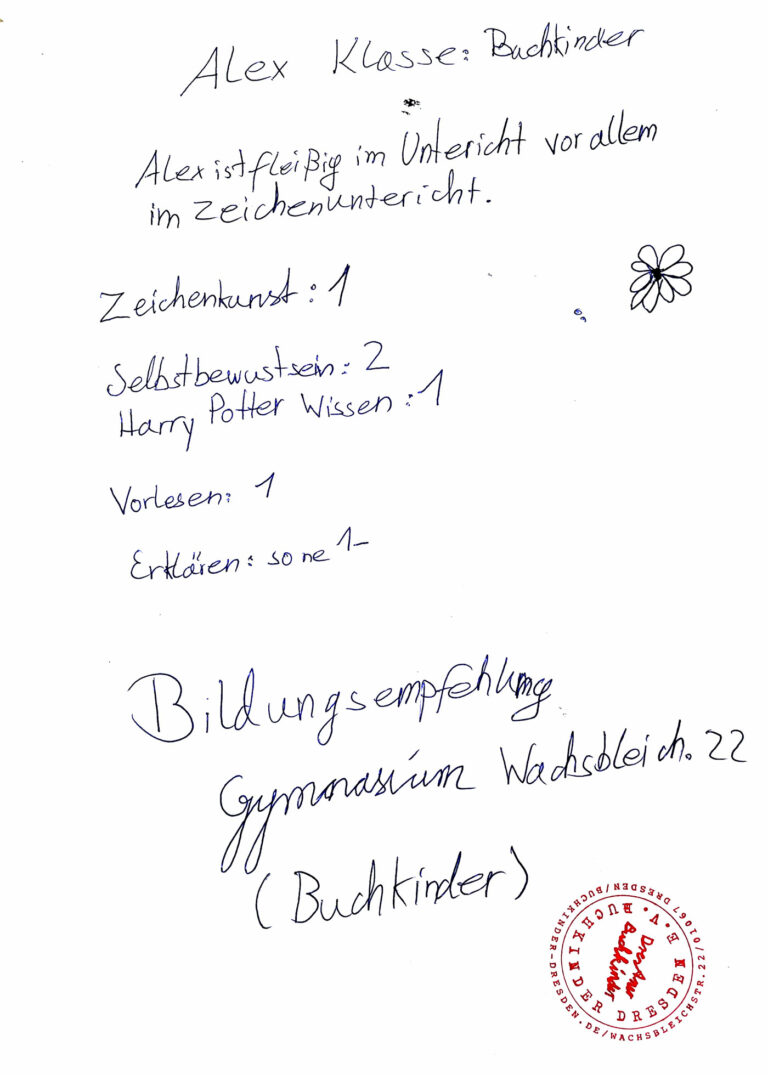 Alex Klasse: Buchkinder
Alex ist fleißig im Untericht vor allem
im Zeichenuntericht.
Zeichenkunst: 1
Selbstbewustsein: 2
Harry Potter Wissen: 1
Vorlesen: 1
Erklären: so ne 1-
Bildungsempfehlung
Gymnasium Wachsbleich. 22
(Buchkinder)
BUCHKINDER DRESDEN E.V.
BUCHKINDER-DRESDEN.DE/WACHSBLEICHSTR.22/01067 DRESDEN/
Dresdner
Buchkinder